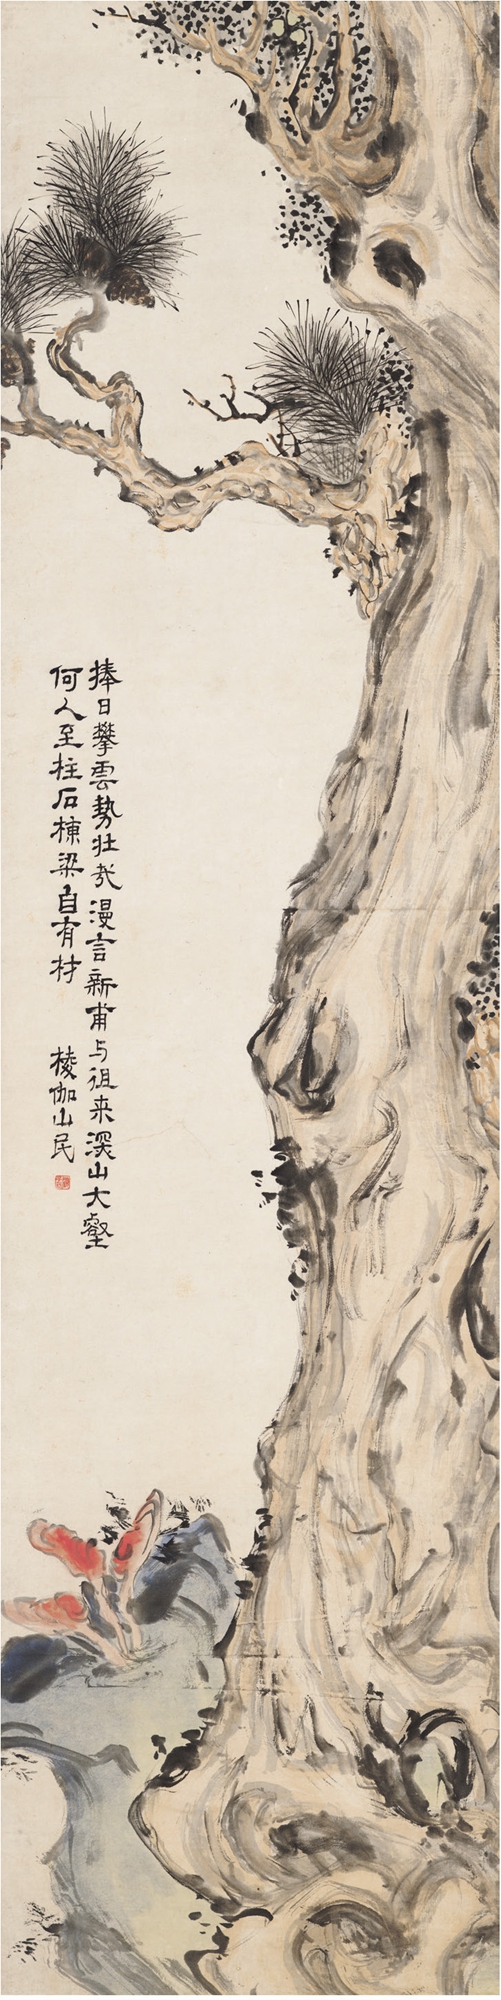 捧日攀雲勢壯哉漫言新甫与徂来深山大壑
何人至柱石棟梁自有材
棱伽山民